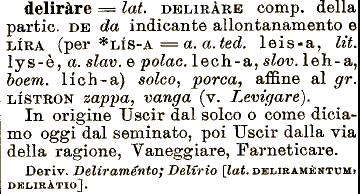 deliràre = lat. DELIRÀRE comp. della
partic. DE da indicante allontanamento e
LÍRA (per *LÍS-A = a. a. ted. leis-a, lit.
lys-è, a. slav. e polac. lech-a, slov. leh-a,
boem. lích-a) solco, porca, affine al gr.
LÍSTRON zappa, vanga (v. Levigare).
In origine Uscir dal solco o come dicia-
mo oggi dal seminato, poi Uscir dalla via
della ragione, Vaneggiare, Farneticare.
Deriv. Deliraménto; Delírio [lat. DELIRAMÈNTUM,
DELIRÀTIO].